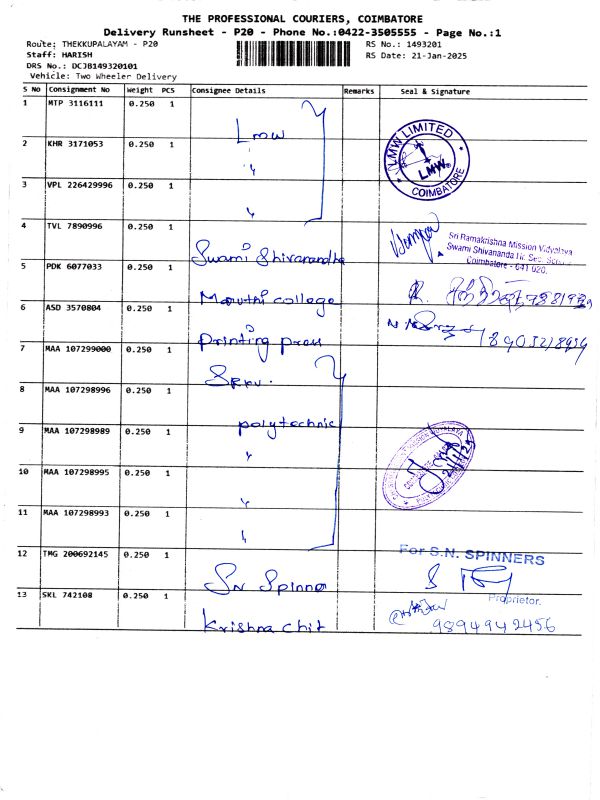 THE PROFESSIONAL COURIERS, COIMBATORE
Delivery Runsheet - P20 - Phone No.:0422-3505555 - Page No.:1
Route: THEKKUPALAYAM - P20
RS No.: 1493201
Staff: HARISH
RS Date: 21-Jan-2025
DRS No.: DCJB149320101
Vehicle: Two Wheeler Delivery
S No Consignment No Weight PCS Consignee Details Remarks Seal & Signature
1 MTP 3116111 0.250 1 Lmw
LMW LIMITED
LMW
COIMBATORE
2 KHR 3171053 0.250 1 "
3 VPL 226429996 0.250 1 "
4 TVL 7890996 0.250 1 Swami Shivanandha
Sri Ramakrishna Mission Vidyalaya
Swami Shivananda Hr. Sec.
Coimbatore - 641 020.
5 PDK 6077033 0.250 1 Maruthi college
6 ASD 3570804 0.250 1 Printing press
7 MAA 107299000 0.250 1 SRKV.
8 MAA 107298996 0.250 1 polytechnic
9 MAA 107298989 0.250 1 "
10 MAA 107298995 0.250 1 "
11 MAA 107298993 0.250 1 "
12 TMG 200692145 0.250 1 SN Spinno
For S.N. SPINNERS
Proprietor.
13 SKL 742108 0.250 1 Krishna chit
9894942456